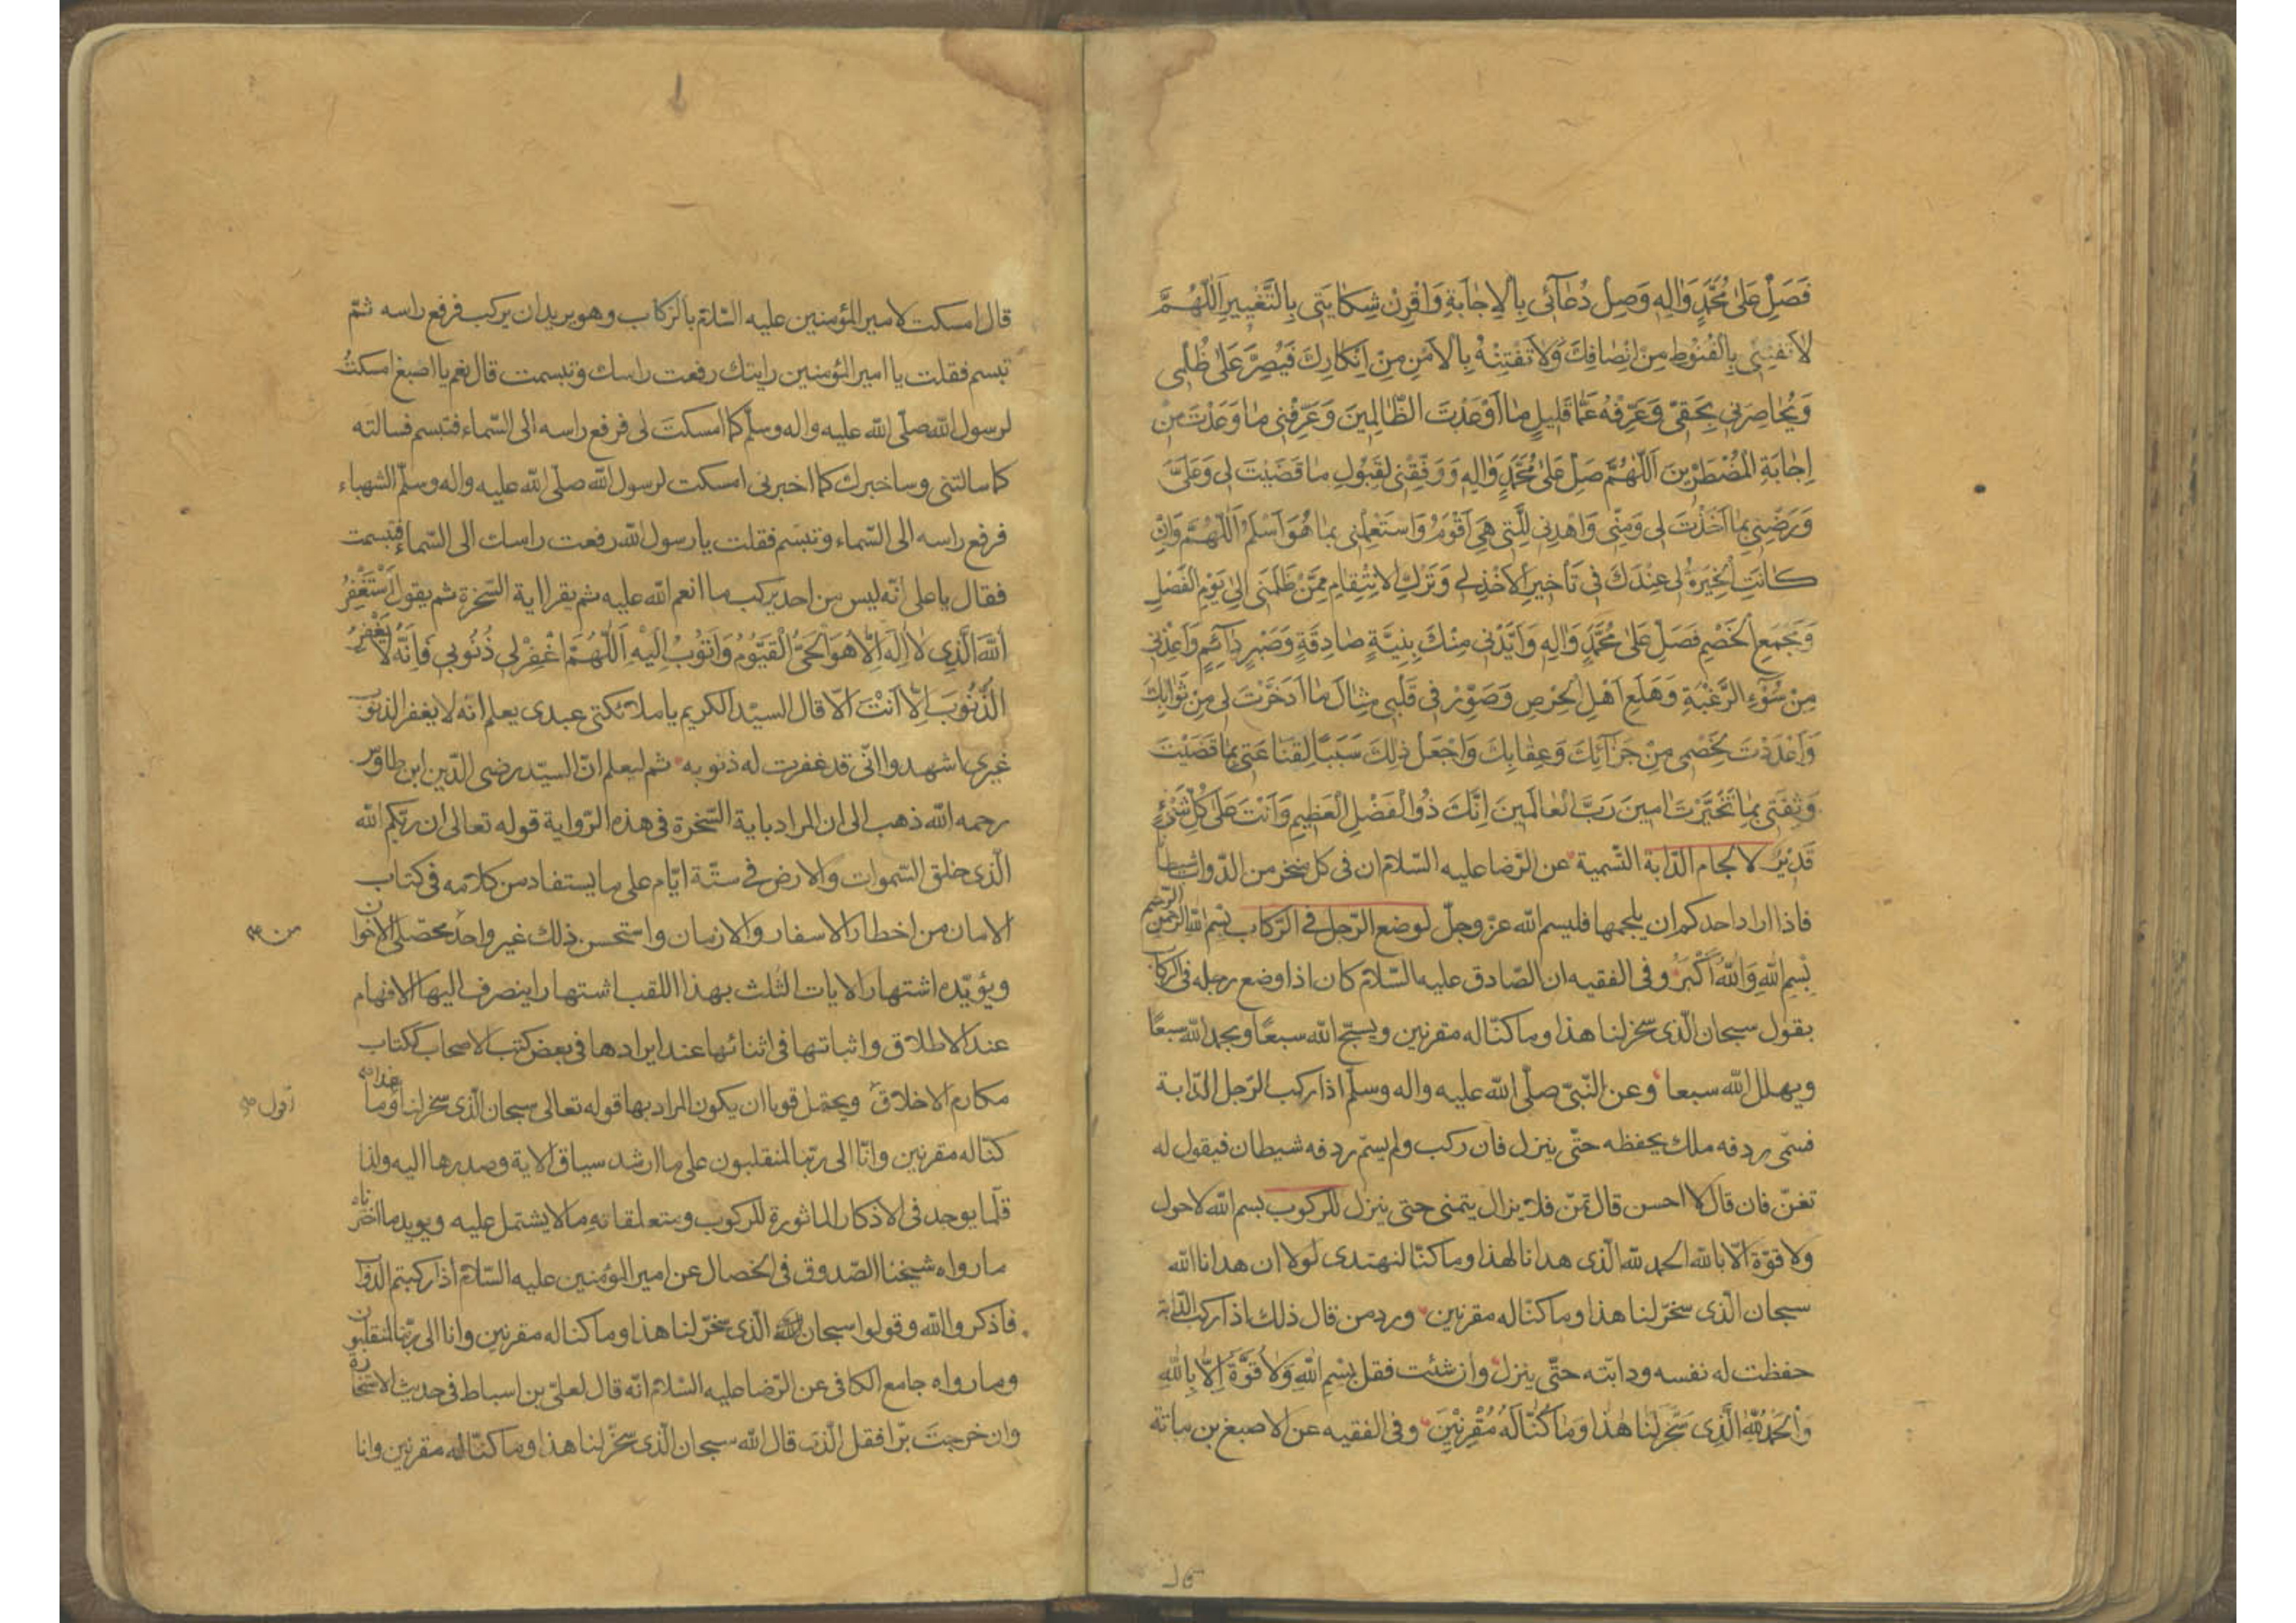 فَصَلِّ عَلىٰ مُحَمَّدٍ وَاٰلِهِ وَصِلْ دُعَآئى بِالْاِجٰابَةِ وَاقْرِنْ شِكٰايَتى بِالتَّغْييرِ اَللّٰهُمَّ
لاٰ تَفْتِنّى بِالْقُنُوطِ مِنْ اِنْصٰافِكَ وَلاٰ تَفْتِنْهُ بِالْاَمْنِ مِنْ اِنْكٰارِكَ فَيُصِرَّ عَلىٰ ظُلْمى
وَيُحٰاصِرَنى بِحَقّى وَعَرِّفْهُ عَمّٰا قَليلٍ مٰا اَوْعَدْتَ الظّٰالِمينَ وَعَرِّفْنى مٰا وَعَدْتَ مِنْ
اِجٰابَةِ الْمُضْطَرّينَ اَللّٰهُمَّ صَلِّ عَلىٰ مُحَمَّدٍ وَاٰلِهِ وَوَفِّقْنى لِقَبُولِ مٰا قَضَيْتَ لى وَعَلَىَّ
وَرَضِّنى بِمٰا اَخَذْتَ لى وَمِنّى وَاهْدِنى لِلَّتى هِىَ اَقْوَمُ وَاسْتَعْمِلْنى بِمٰا هُوَ اَسْلَمُ اَللّٰهُمَّ وَاِنْ
كٰانَتِ الْخِيَرَةُ لى عِنْدَكَ فى تَأْخيرِ الْاَخْذِ لى وَتَرْكِ الْاِنْتِقٰامِ مِمَّنْ ظَلَمَنى اِلىٰ يَوْمِ الْفَصْلِ
وَمَجْمَعِ الْخَصْمِ فَصَلِّ عَلىٰ مُحَمَّدٍ وَاٰلِهِ وَاَيِّدْنى مِنْكَ بِنِيَّةٍ صٰادِقَةٍ وَصَبْرٍ دٰآئِمٍ وَاَعِذْنى
مِنْ سُوٓءِ الرَّغْبَةِ وَهَلَعِ اَهْلِ الْحِرْصِ وَصَوِّرْ فى قَلْبى مِثٰالَ مٰا ادَّخَرْتَ لى مِنْ ثَوٰابِكَ
وَاَعْدَدْتَ لِخَصْمى مِنْ جَزٰآئِكَ وَعِقٰابِكَ وَاجْعَلْ ذٰلِكَ سَبَبًا لِقَنٰاعَتى بِمٰا قَضَيْتَ
وَثِقَتى بِمٰا تَخَيَّرْتَ اٰمينَ رَبَّ الْعٰالَمينَ اِنَّكَ ذُو الْفَضْلِ الْعَظيمِ وَاَنْتَ عَلىٰ كُلِّ شَىْءٍ
قَديرٌ لالجام الدّابة التّسمية عن الرّضا عليه السّلام ان فى كل منخر من الدّواب شيطانا
فاذا اراد احدكم ان يلجمها فليسم الله عزّ وجلّ لوضع الرّجل فى الرّكاب بسم الله الرّحمن الرّحيم
بِسْمِ اللهِ وَاللهُ اَكْبَرُ وفى الفقيه ان الصّادق عليه السّلام كان اذا وضع رجله فى الركاب
يقول سبحان الّذى سخر لنا هذا وما كنّا له مقرنين ويسبّح الله سبعًا ويحمد الله سبعًا
ويهلل الله سبعا وعن النّبىّ صلّى الله عليه واله وسلّم اذا ركب الرّجل الدّابة
فسمّى ردفه ملك يحفظه حتّى ينزل فان ركب ولم يسمّ ردفه شيطان فيقول له
تغنّ فان قال لا احسن قال تمّن فلا يزال يتمنى حتى ينزل للركوب بسم الله لا حول
ولا قوّة الّا بالله الحمد لله الّذى هدانا لهذا وما كنّا لنهتدى لولا ان هدانا الله
سبحان الّذى سخّر لنا هذا وما كنّا له مقرنين ورد من قال ذلك اذا ركب الدّابة
حفظت له نفسه ودابّته حتّى ينزل وان شئت فقل بِسْمِ اللهِ وَلاٰ قُوَّةَ اِلّاٰ بِاللهِ
وَالْحَمْدُ لِلّٰهِ الَّذِى سَخَّرَ لَنٰا هٰذٰا وَمٰا كُنّٰا لَهُ مُقْرِنينَ وفى الفقيه عن الاصبغ بن نباتة
قال امسكت لامير المؤمنين عليه السّلام بالركاب وهو يريد ان يركب فرفع راسه ثمّ
تبسم فقلت يا امير المؤمنين رايتك رفعت راسك وتبسمت قال نعم يا اصبغ امسكتُ
لرسول الله صلّى الله عليه واله وسلّم كما امسكتَ لى فرفع راسه الى السّماء فتبسم فسالته
كما سالتنى وساخبرك كما اخبرنى امسكت لرسول الله صلّى الله عليه واله وسلّم الشهباء
فرفع راسه الى السّماء وتبسّم فقلت يا رسول الله رفعت راسك الى السّماء فتبسمت
فقال يا على انّه ليس من احد يركب ما انعم الله عليه ثم يقرا اية السّخرة ثم يقول اَسْتَغْفِرُ
اللهَ الَّذِى لاٰ اِلٰهَ اِلّاٰ هُوَ الْحَىُّ الْقَيُّومُ وَاَتُوبُ اِلَيْهِ اَللّٰهُمَّ اغْفِرْ لى ذُنُوبى فَاِنَّهُ لاٰ يَغْفِرُ
الذُّنُوبَ اِلّاٰ اَنْتَ الّا قال السيّد الكريم يا ملائكتى عبدى يعلم انه لا يغفر الذنوب
غيرى اشهدوا انّى قد غفرت له ذنوبه ثم ليعلم انّ السيّد رضى الدّين ابن طاوس
رحمه الله ذهب الى ان المراد باية السّخرة فى هذه الرّواية قوله تعالى ان ربّكم الله
الّذى خلق السّموات والارض فى ستّة ايّام على ما يستفاد من كلامه فى كتاب
الامان من اخطار الاسفار والازمان واستحسن ذلك غير واحد محصّلى الاخوان
من صح
ويؤيّده اشتهار الايات الثلث بهذا اللقب اشتهارا ينصرف اليها الافهام
عند الاطلاق واثباتها فى اثنائها عند ايرادها فى بعض كتب الاصحاب ككتاب
مكارم الاخلاق ويحتمل قويا ان يكون المراد بها قوله تعالى سبحان الّذى سخر لنا هذا وما
اقول صح
كنّا له مقرنين وانّا الى ربّنا لمنقلبون على ما ارشد سياق الاية وصدرها اليه ولذا
قلّما يوجد فى الاذكار الماثورة للركوب ومتعلقاته ما لا يشتمل عليه ويويد ما اخترناه
ما رواه شيخنا الصّدوق فى الخصال عن امير المؤمنين عليه السّلام اذا ركبتم الدّواب
فاذكروا الله وقولوا سبحان الّذى سخّر لنا هذا وما كنا له مقرنين وانا الى ربّنا لمنقلبون
وما رواه جامع الكافى عن الرّضا عليه السّلام انّه قال لعلىّ بن اسباط فى حديث الاستخارة
وان خرجتَ برّا فقل الّذى قال الله سبحان الّذى سخّر لنا هذا وما كنّا له مقرنين وانا